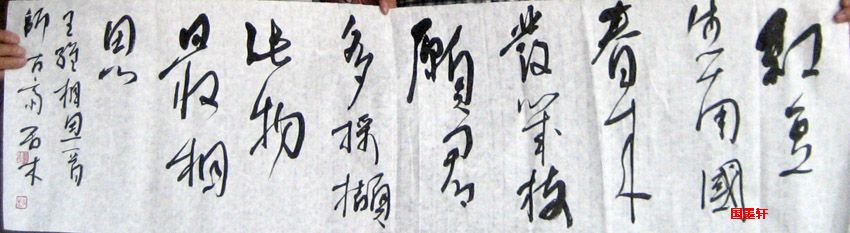 紅豆
生南國
春來
發幾枝
願君
多採擷
此物
最相
思
王維相思一首
師古齋 石木
国墨轩